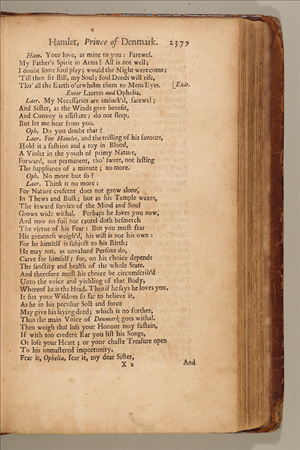 Hamlet, Prince of Denmark. 2379
Ham. Your love, as mine to you: Farewel.
My Father's Spirit in Arms! All is not well;
I doubt some foul play; would the Night were come;
'Till then sit still, my Soul; foul Deeds will rise,
Tho' all the Earth o'erwhelm them to Mens Eyes. [Exit.
Enter Laertes and Ophelia.
Laer. My Necessaries are imbark'd, farewel;
And Sister, as the Winds give benefit,
And Convoy is assistant; do not sleep,
But let me hear from you.
Oph. Do you doubt that?
Laer. For Hamlet, and the trifling of his favours,
Hold it a fashion and a toy in Blood,
A Violet in the youth of primy Nature,
Forward, not permanent, tho' sweet, not lasting
The suppliance of a minute; no more.
Oph. No more but so?
Laer. Think it no more:
For Nature crescent does not grow alone,
In Thews and Bulk; but as his Temple waxes,
The inward service of the Mind and Soul
Grows wide withal. Perhaps he loves you now,
And now no soil nor cautel doth besmerch
The virtue of his Fear: But you must fear
His greatness weigh'd, his will is not his own:
For he himself is subject to his Birth;
He may not, as unvalued Persons do,
Carve for himself; for, on his choice depends
The sanctity and health of the whole State.
And therefore must his choice be circumscrib'd
Unto the voice and yielding of that Body,
Whereof he is the Head. Then if he says he loves you,
It fits your Wisdom so far to believe it,
As he in his peculiar Sect and force
May give his saying deed; which is no further,
Than the main Voice of Denmark goes withal.
Then weigh what loss your Honour may sustain,
If with too credent Ear you list his Songs,
Or lose your Heart; or your chaste Treasure open
To his unmastered importunity.
Fear it, Ophelia, fear it, my dear Sister,
X 2 And